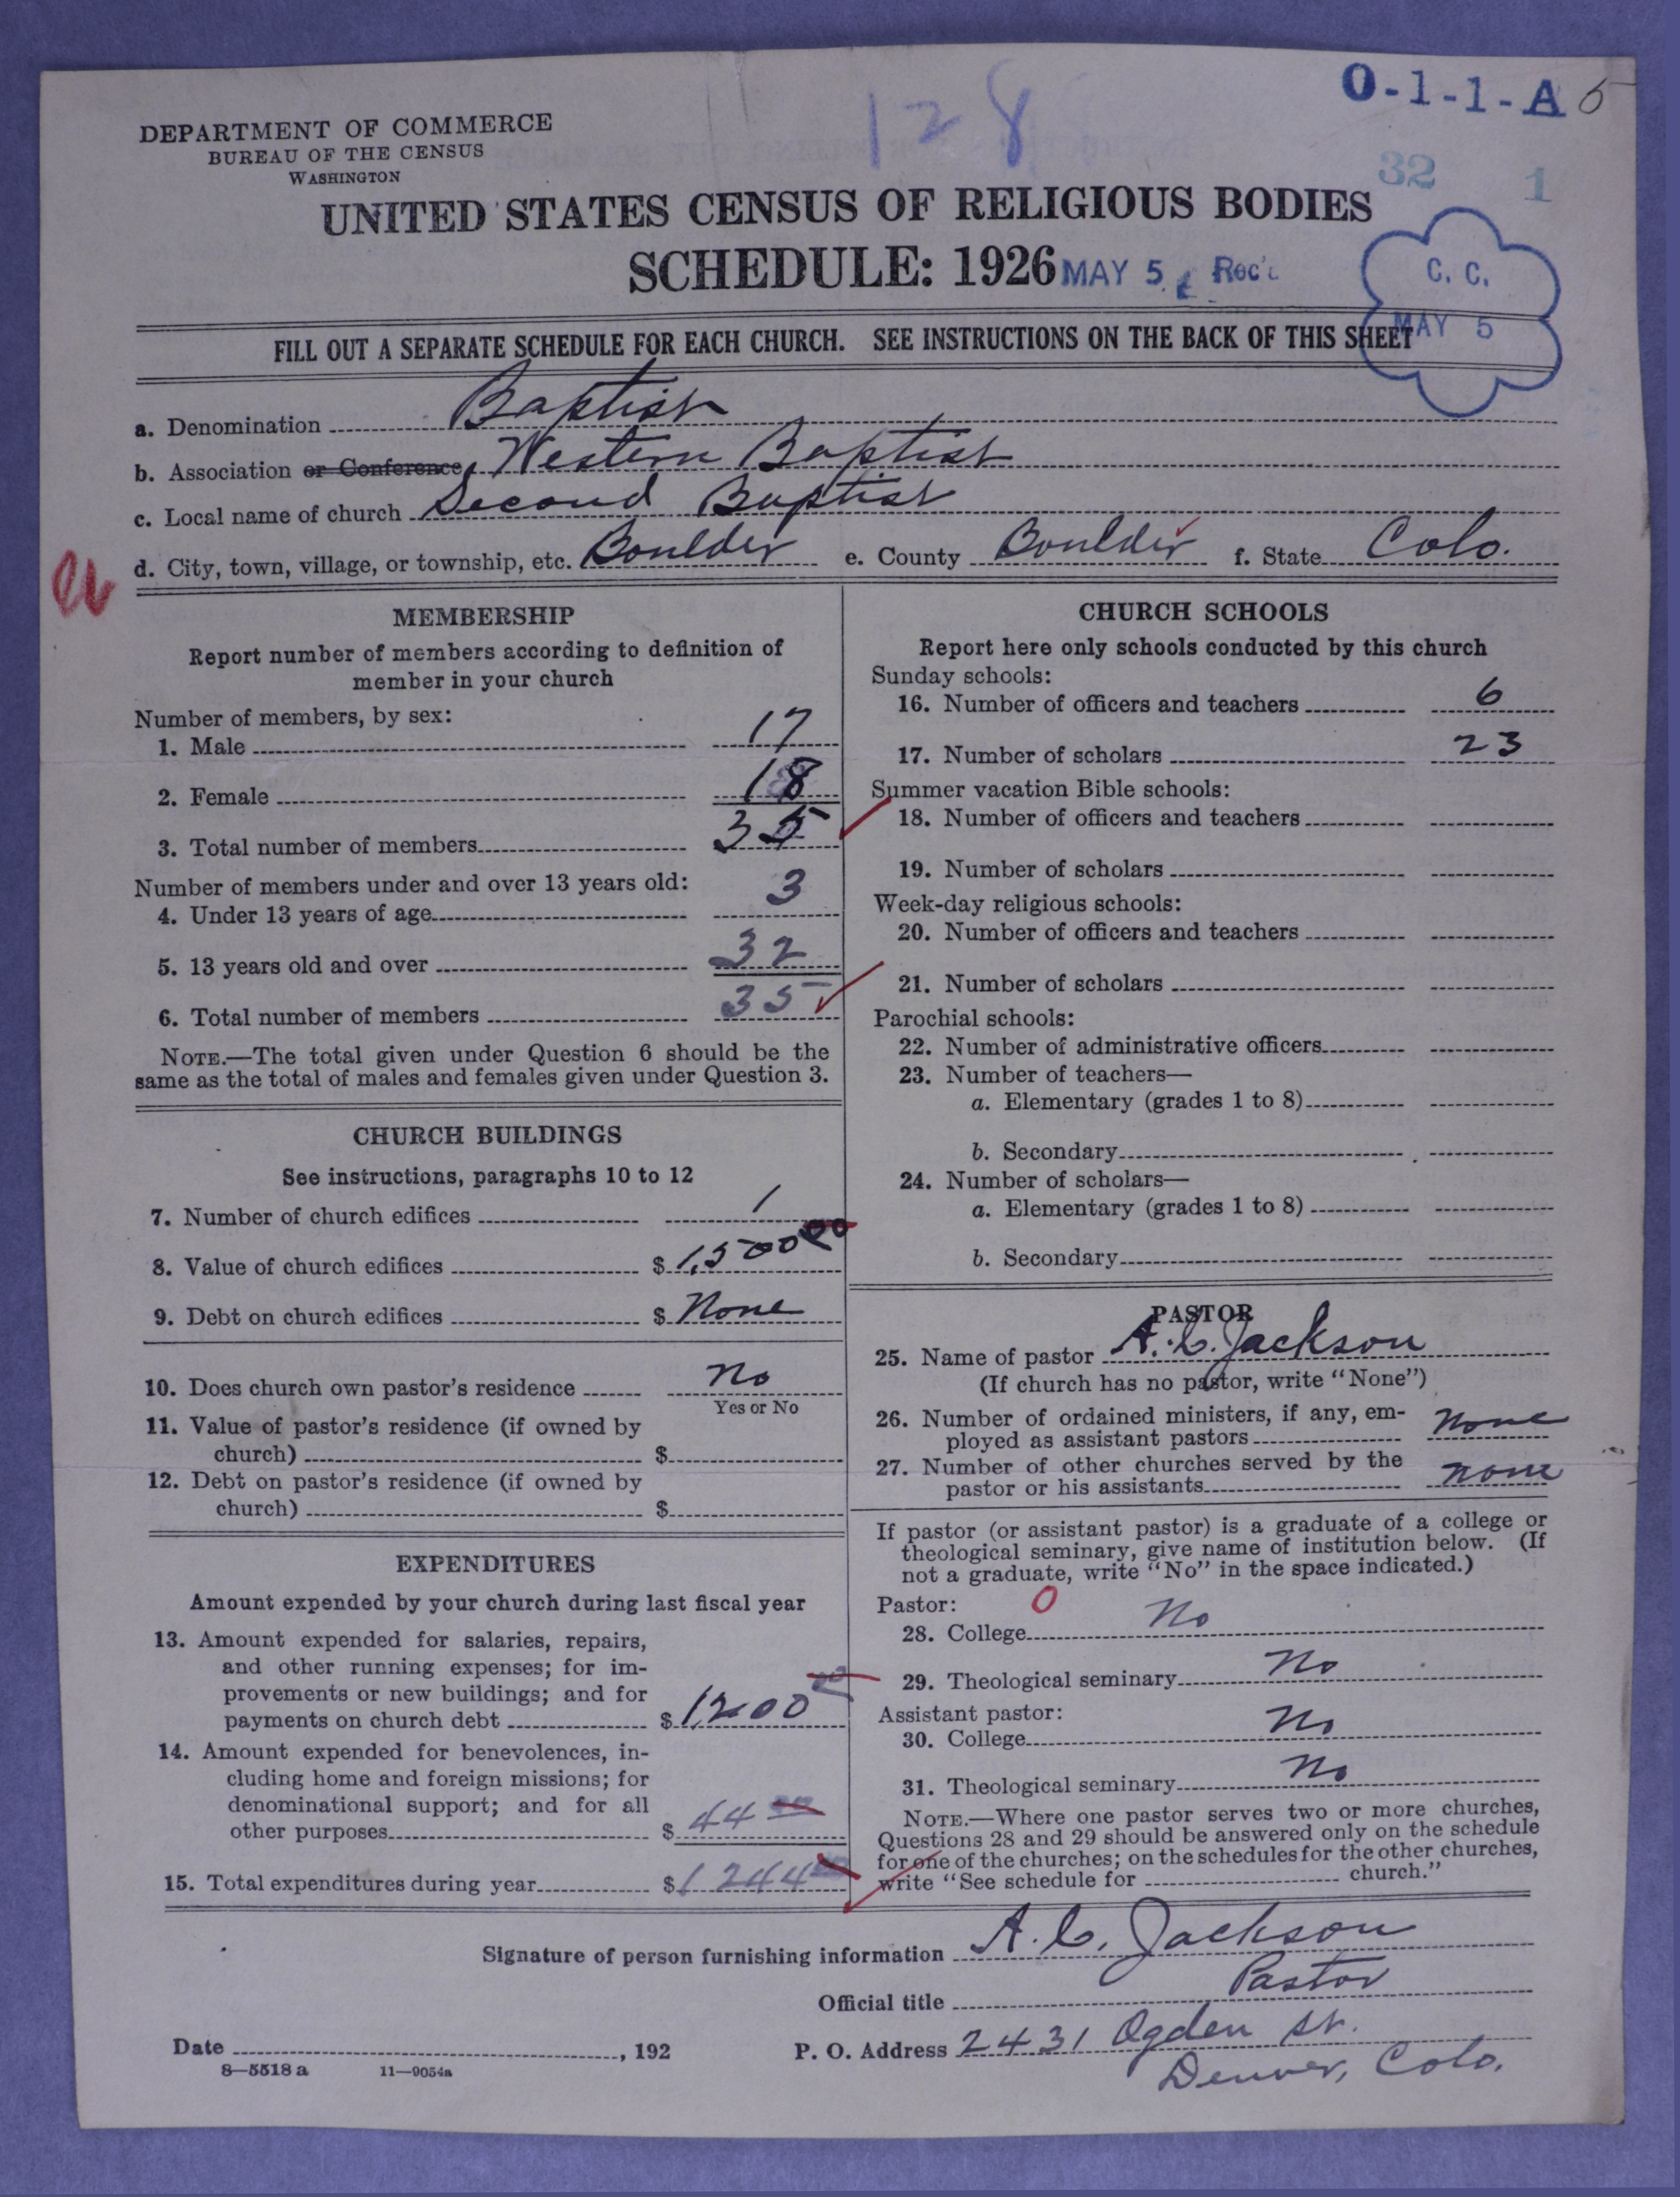 128
O-1-1-A 5
DEPARTMENT OF COMMERCE
BUREAU OF THE CENSUS
WASHINGTON
32 1
UNITED STATES CENSUS OF RELIGIOUS BODIES
SCHEDULE: 1926 MAY 5 Rec'd
C. C.
MAY 5
FILL OUT A SEPARATE SCHEDULE FOR EACH CHURCH. SEE INSTRUCTIONS ON THE BACK OF THIS SHEET
a. Denomination Baptist
b. Association or Conference, Western Baptist
c. Local name of church Second Baptist
d. City, town, village, or township, etc. Boulder e. County Boulder f. State Colo.
MEMBERSHIP
Report number of members according to definition of
member in your church
Number of members, by sex:
1. Male 17
2. Female 18
3. Total number of members 35
Number of members under and over 13 years old:
4. Under 13 years of age 3
5. 13 years old and over 32
6. Total number of members 35
NOTE.—The total given under Question 6 should be the
same as the total of males and females given under Question 3.
CHURCH BUILDINGS
See instructions, paragraphs 10 to 12
7. Number of church edifices 1
8. Value of church edifices $ 1,500 00
9. Debt on church edifices $ None
10. Does church own pastor's residence No
Yes or No
11. Value of pastor's residence (if owned by
church) $
12. Debt on pastor's residence (if owned by
church) $
EXPENDITURES
Amount expended by your church during last fiscal year
13. Amount expended for salaries, repairs,
and other running expenses; for im-
provements or new buildings; and for
payments on church debt $ 1,200 00
14. Amount expended for benevolences, in-
cluding home and foreign missions; for
denominational support; and for all
other purposes $ 44 00
15. Total expenditures during year $ 1244 00
CHURCH SCHOOLS
Report here only schools conducted by this church
Sunday schools:
16. Number of officers and teachers 6
17. Number of scholars 23
Summer vacation Bible schools:
18. Number of officers and teachers
19. Number of scholars
Week-day religious schools:
20. Number of officers and teachers
21. Number of scholars
Parochial schools:
22. Number of administrative officers
23. Number of teachers—
a. Elementary (grades 1 to 8)
b. Secondary
24. Number of scholars—
a. Elementary (grades 1 to 8)
b. Secondary
PASTOR
25. Name of pastor A. C. Jackson
(If church has no pastor, write "None")
26. Number of ordained ministers, if any, em-
ployed as assistant pastors None
27. Number of other churches served by the
pastor or his assistants None
If pastor (or assistant pastor) is a graduate of a college or
theological seminary, give name of institution below. (If
not a graduate, write "No" in the space indicated.)
Pastor: 0
28. College No
29. Theological seminary No
Assistant pastor:
30. College No
31. Theological seminary No
NOTE.—Where one pastor serves two or more churches,
Questions 28 and 29 should be answered only on the schedule
for one of the churches; on the schedules for the other churches,
write "See schedule for church."
Signature of person furnishing information A. C. Jackson
Official title Pastor
Date , 192 P. O. Address 2431 Ogden St.
Denver, Colo.
8—5518 a 11—9054a